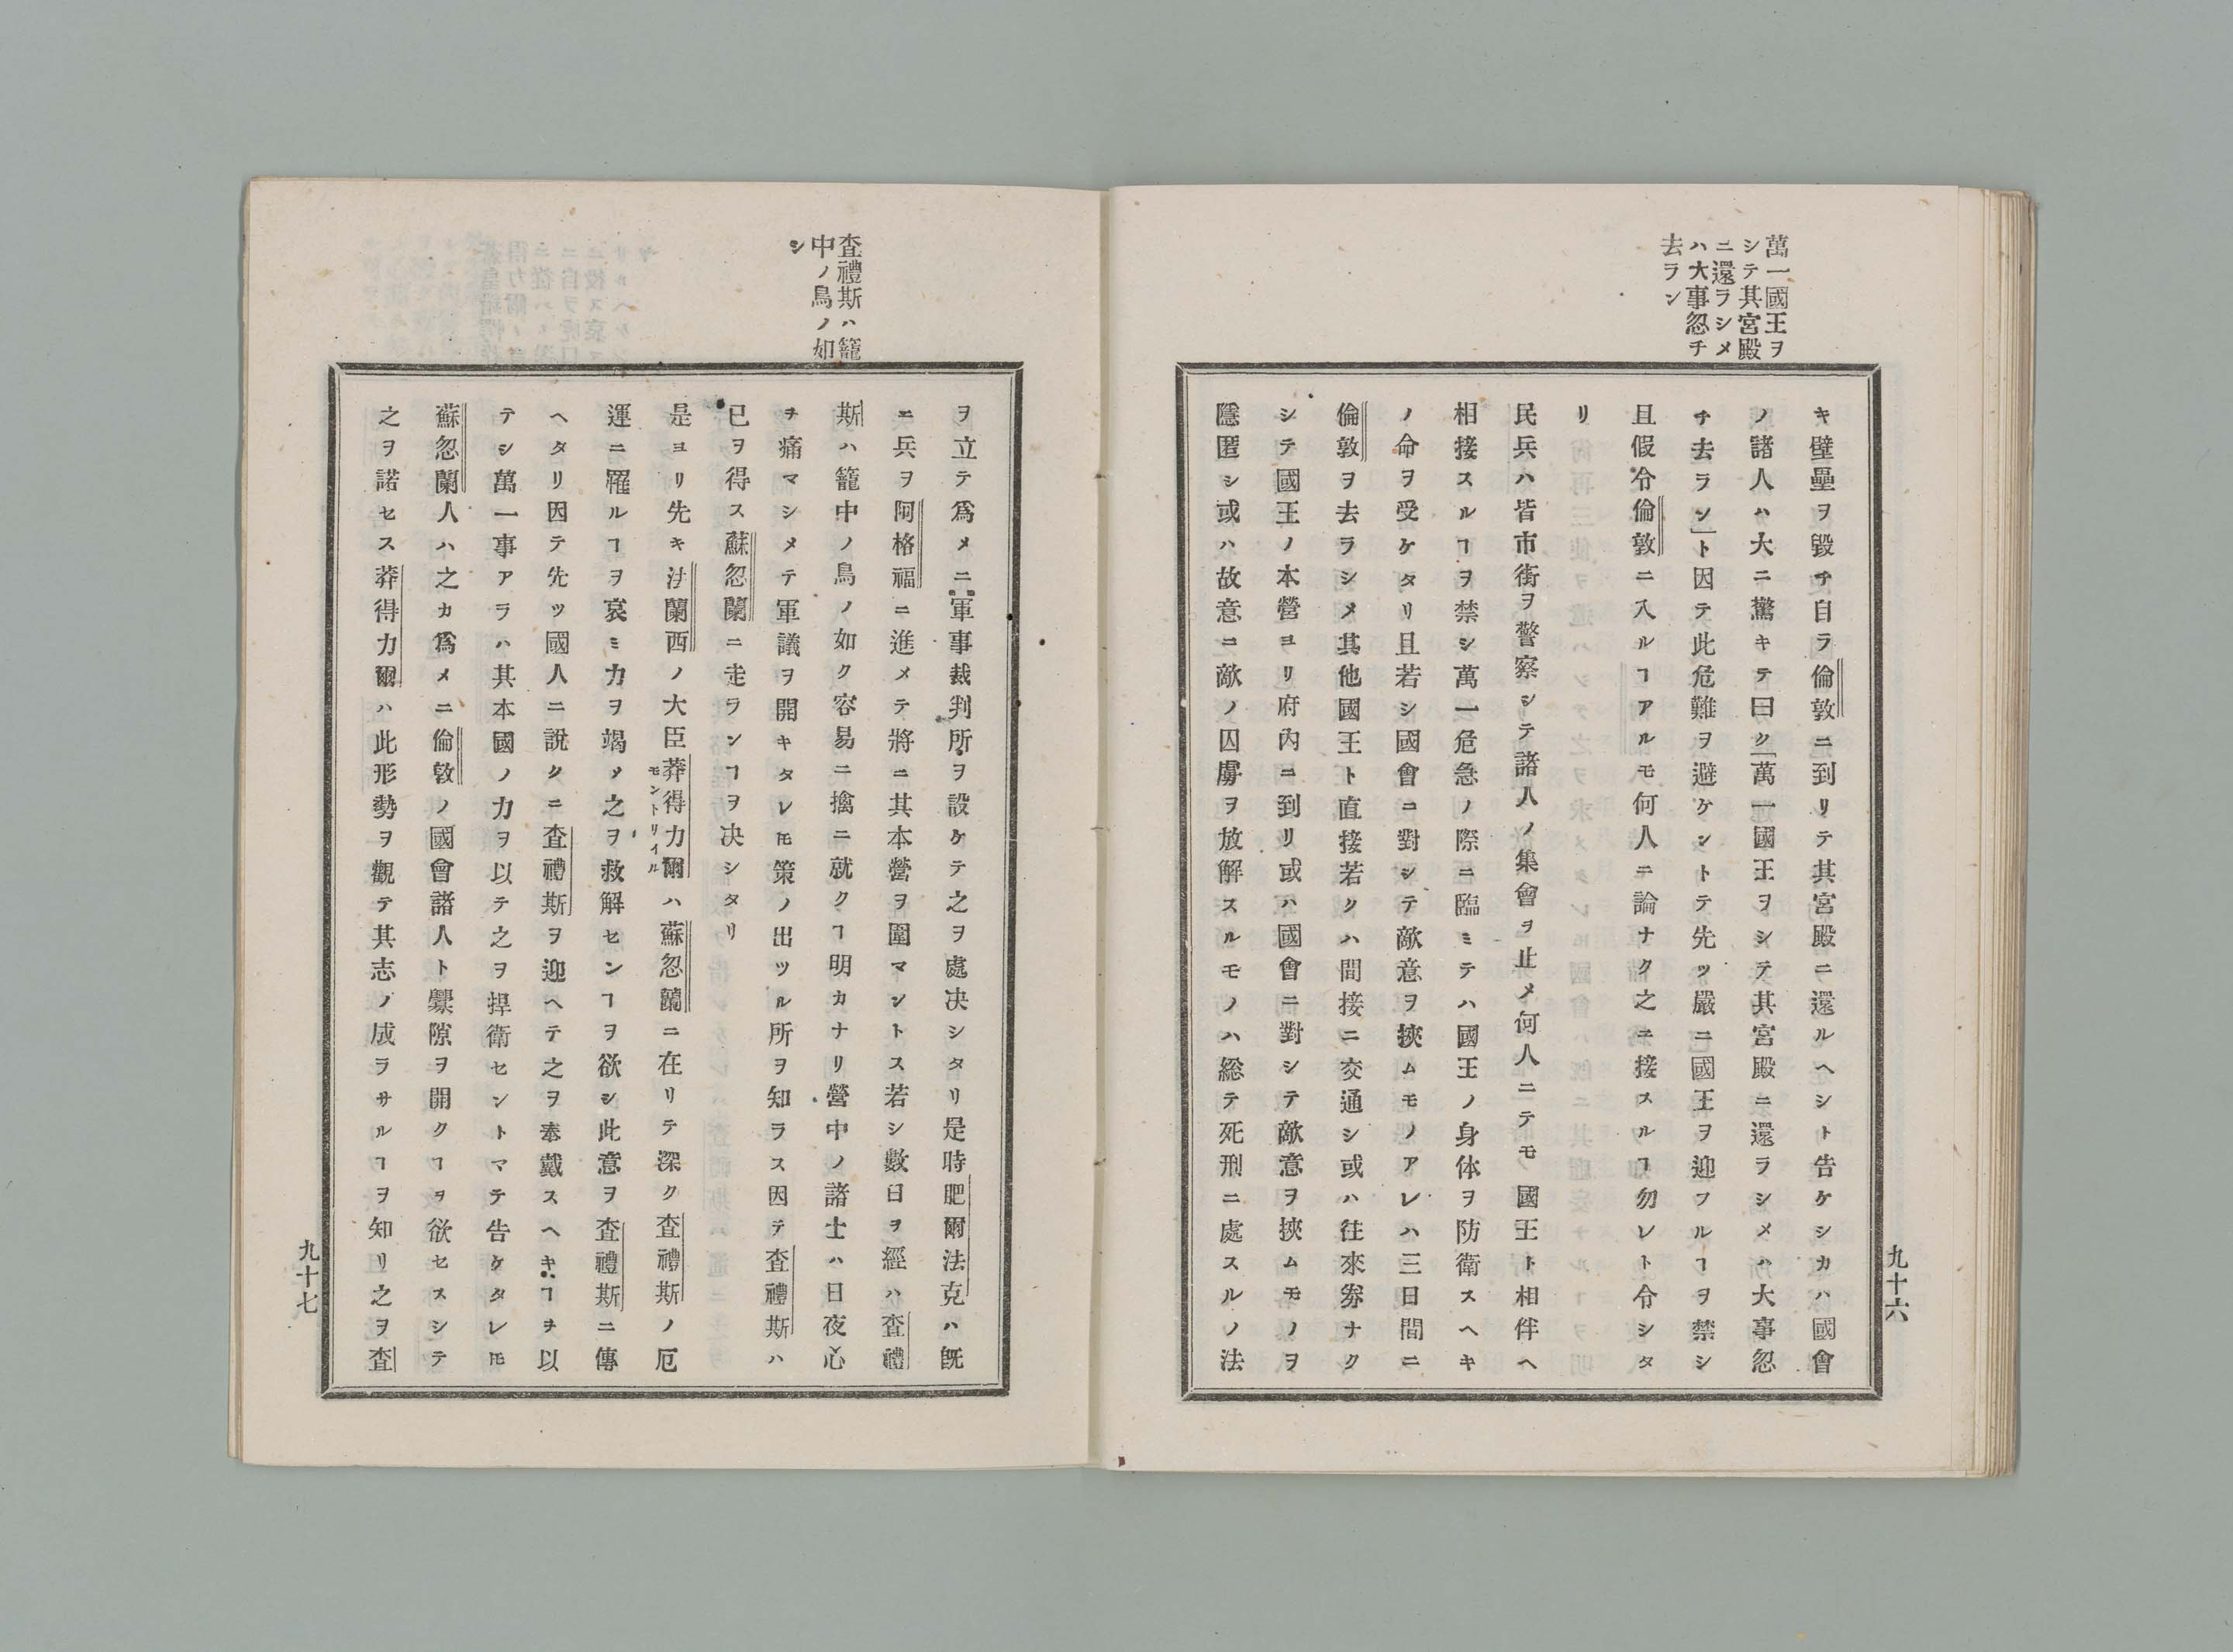 萬一國王ヲ
シテ其宮殿
ニ還ラシメ
ハ大事忽チ
去ラン
キ壁壘ヲ毀チ自ラ倫敦ニ到リテ其宮殿ニ還ルヘシト告ケシカハ國會
ノ諸人ハ大ニ驚キテ曰ク「萬一國王ヲシテ其宮殿ニ還ラシメハ大事忽
チ去ラン」ト因テ此危難ヲ避ケントテ先ツ嚴ニ國王ヲ迎フルヿヲ禁シ
且假令倫敦ニ入ルヿアルモ何人ニ論ナク之ニ接スルヿ勿レト令シタ
リ
民兵ハ皆市街ヲ警察シテ諸人ノ集會ヲ止メ何人ニテモ國王ト相伴ヘ
相接スルヿヲ禁シ萬一危急ノ際ニ臨ミテハ國王ノ身体ヲ防衛スヘキ
ノ命ヲ受ケタリ且若シ國會ニ對シテ敵意ヲ挾ムモノアレハ三日間ニ
倫敦ヲ去ラシメ其他國王ト直接若クハ間接ニ交通シ或ハ往來券ナク
シテ國王ノ本營ヨリ府内ニ到リ或ハ國會ニ對シテ敵意ヲ挾ムモノヲ
隱匿シ或ハ故意ニ敵ノ囚虜ヲ放解スルモノハ総テ死刑ニ處スルノ法
九十六
査禮斯ハ籠
中ノ鳥ノ如
シ
ヲ立テ爲メニ軍事裁判所ヲ設ケテ之ヲ處决シタリ是時肥爾法克ハ既
ニ兵ヲ阿格福ニ進メテ將ニ其本營ヲ圍マントス若シ數日ヲ經ハ査禮
斯ハ籠中ノ鳥ノ如ク容易ニ擒ニ就クヿ明カナリ營中ノ諸士ハ日夜心
ヲ痛マシメテ軍議ヲ開キタレ𪜈策ノ出ツル所ヲ知ラス因テ査禮斯ハ
已ヲ得ス蘇忽蘭ニ走ランヿヲ决シタリ
是ヨリ先キ法蘭西ノ大臣莽得力爾モントリイルハ蘇忽蘭ニ在リテ深ク査禮斯ノ厄
運ニ罹ルヿヲ哀ミ力ヲ竭メ之ヲ救解センヿヲ欲シ此意ヲ査禮斯ニ傳
ヘタリ因テ先ツ國人ニ說クニ査禮斯ヲ迎ヘテ之ヲ奉戴スヘキヿヲ以
テシ萬一事アラハ其本國ノ力ヲ以テ之ヲ捍衛セントマテ告ケタレ𪜈
蘇忽蘭人ハ之カ爲メニ倫敦ノ國會諸人ト釁隙ヲ開クヿヲ欲セスシテ
之ヲ諾セス莽得力爾ハ此形勢ヲ觀テ其志ノ成ラサルヿヲ知リ之ヲ査
九十七